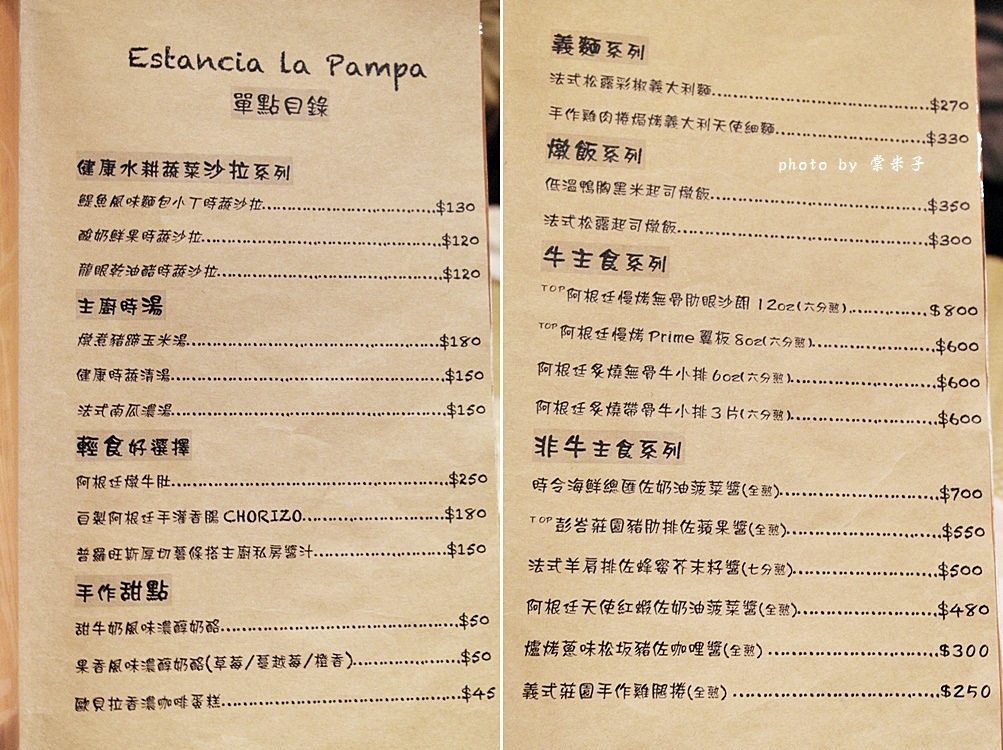 Estancia la Pampa
單點目錄
健康水耕蔬菜沙拉系列
鯷魚風味麵包小丁時蔬沙拉 $130
酸奶鮮果時蔬沙拉 $120
龍眼乾油醋時蔬沙拉 $120
主廚時湯
燉煮豬蹄玉米湯 $180
健康時蔬清湯 $150
法式南瓜濃湯 $150
輕食好選擇
阿根廷燉牛肚 $250
自製阿根廷手灌香腸 CHORIZO $180
普羅旺斯厚切薯條搭主廚私房醬汁 $150
手作甜點
甜牛奶風味濃醇奶酪 $50
果香風味濃醇奶酪(草莓/蔓越莓/橙香) $50
歐貝拉香濃咖啡蛋糕 $45
義麵系列
法式松露彩椒義大利麵 $270
手作雞肉捲焗烤義大利天使細麵 $330
photo by 棠米子
燉飯系列
低溫鴨胸黑米起司燉飯 $350
法式松露起司燉飯 $300
牛主食系列
TOP阿根廷慢烤無骨肋眼沙朗 12oz(六分熟) $800
TOP阿根廷慢烤 Prime 翼板 8oz(六分熟) $600
阿根廷炙燒無骨牛小排 6oz(六分熟) $600
阿根廷炙燒帶骨牛小排 3 片(六分熟) $600
非牛主食系列
時令海鮮總匯佐奶油菠菜醬(全熟) $700
TOP彭峇莊園豬肋排佐蘋果醬(全熟) $550
法式羊肩排佐蜂蜜芥末籽醬(七分熟) $500
阿根廷天使紅蝦佐奶油菠菜醬(全熟) $480
爐烤蔥味松坂豬佐咖哩醬(全熟) $300
義式莊園手作雞腿捲(全熟) $250